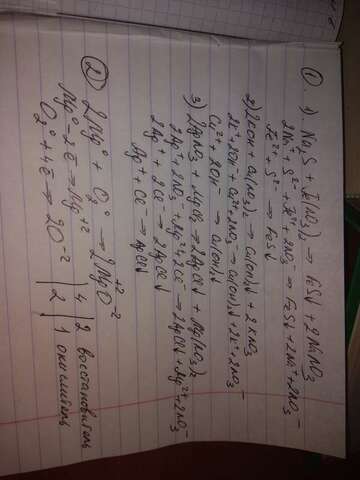 ① 1) Na₂S + Fe(NO₃)₂ → FeS↓ + 2NaNO₃
2Na⁺ + S²⁻ + Fe²⁺ + 2NO₃⁻ → FeS↓ + 2Na⁺ + 2NO₃⁻
Fe²⁺ + S²⁻ → FeS↓
2) 2KOH + Cu(NO₃)₂ → Cu(OH)₂↓ + 2KNO₃
2K⁺ + 2OH⁻ + Cu²⁺ + 2NO₃⁻ → Cu(OH)₂↓ + 2K⁺ + 2NO₃⁻
Cu²⁺ + 2OH⁻ → Cu(OH)₂↓
3) 2AgNO₃ + MgCl₂ → 2AgCl↓ + Mg(NO₃)₂
2Ag⁺ + 2NO₃⁻ + Mg²⁺ + 2Cl⁻ → 2AgCl↓ + Mg²⁺ + 2NO₃⁻
2Ag⁺ + 2Cl⁻ → 2AgCl↓
Ag⁺ + Cl⁻ → AgCl↓
② 2Mg⁰ + O₂⁰ → 2Mg⁺²O⁻²
Mg⁰ - 2e̅ → Mg⁺² | 4 | 2 восстановитель
O₂⁰ + 4e̅ → 2O⁻² | 2 | 1 окислитель